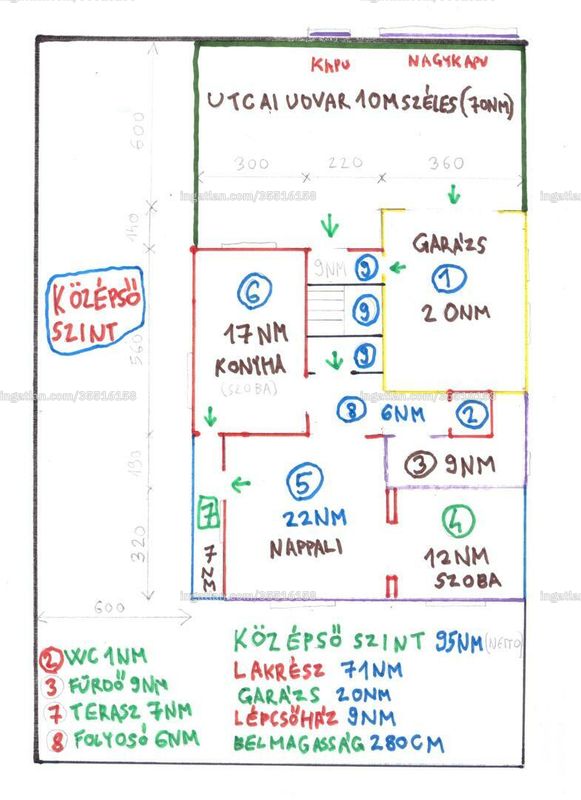 KAPU NAGYKAPU
UTCAI UDVAR 10M SZÉLES (70NM)
600
300 220 360
ingatlan.com/35516158
140
GARÁZS
9NM 9
1
KÖZÉPSŐ
SZINT
6
20NM
9
17NM
KONYHA
(SZOBA)
560
9
ingatlan.com/35516158
8 6NM 2
3 9NM
5
7
22NM
NAPPALI
4
12NM
SZOBA
7NM
320
ingatlan.com/35516158
600
2 WC 1NM
3 FÜRDŐ 9NM
7 TERASZ 7NM
8 FOLYOSÓ 6NM
KÖZÉPSŐ SZINT 95NM (NETTO)
LAKRÉSZ 71NM
GARÁZS 20NM
LÉPCSŐHÁZ 9NM
BELMAGASSÁG 280CM